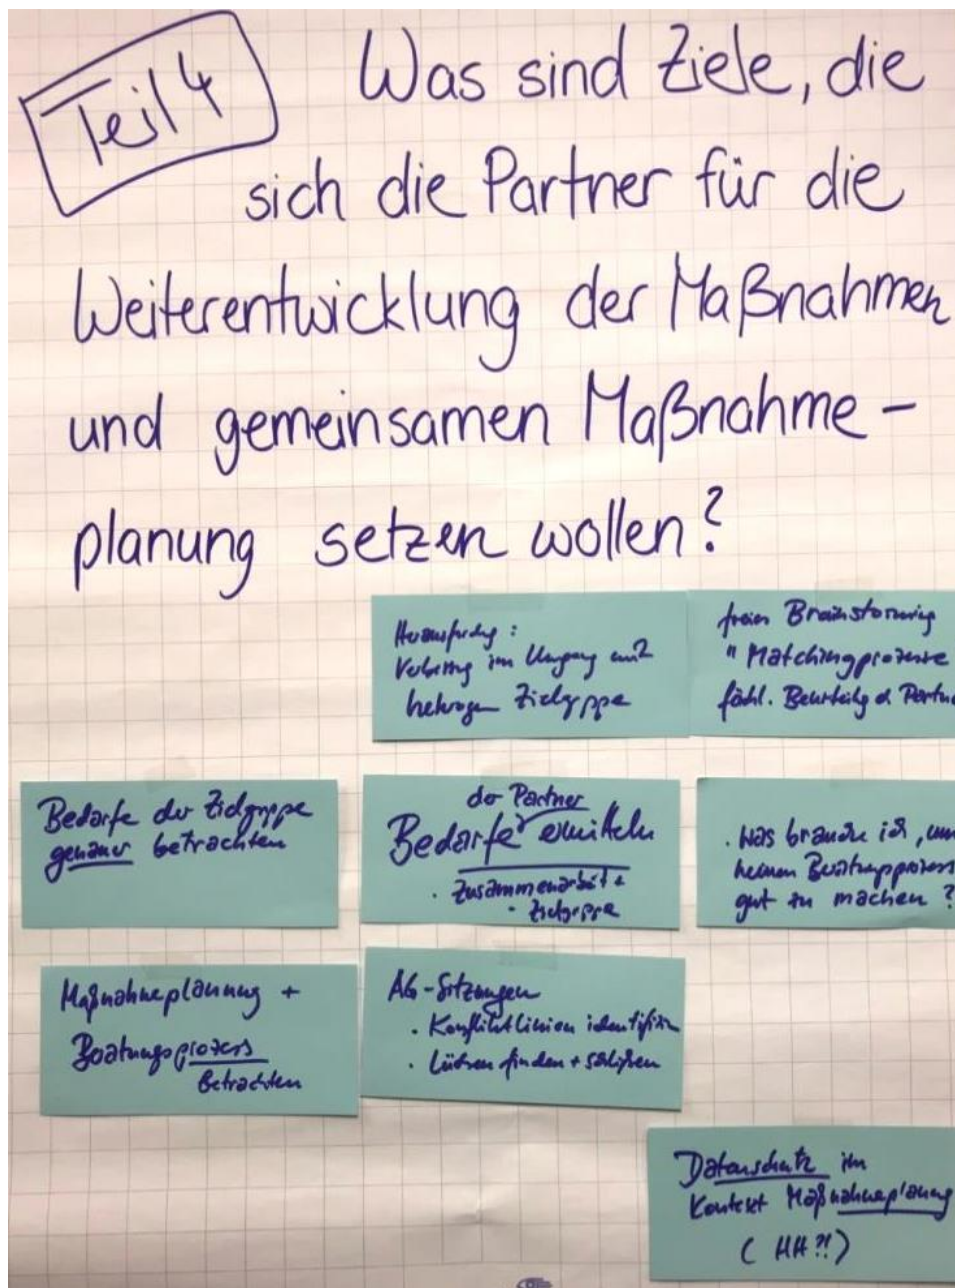 Teil 4
Was sind Ziele, die
sich die Partner für die
Weiterentwicklung der Maßnahmen
und gemeinsamen Maßnahme-
planung setzen wollen?
im Umgang mit
Zielgruppe
Brainstorming
" Matchingprozesse
Bedarfe der Zielgruppe
genauer betrachten
der Partner
Bedarfe ermitteln
. Zusammenarbeit +
- Zielgruppe
. Was brauche ich, um
meinen Beratungsprozess
gut zu machen?
Maßnahmeplanung +
Beratungsprozess
betrachten
AG-Sitzungen
. Konfliktlinien identifizieren
. Lücken finden + schließen
Datenschutz im
Kontext Maßnahmeplanung
( HH?!)